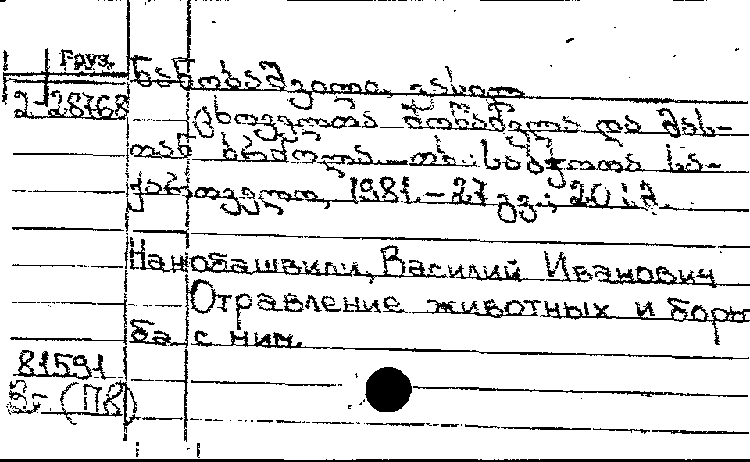 Груз.
ნანობაშვილი, ვასილ
2-28768
ცხოველთა მოწამვლა და მას-
თან ბრძოლა.-თბ.:საბჭოთა სა-
ქართველო, 1981.-27 გვ.; 20 სმ.
Нанобашвили, Василий Иванович
Отравление животных и борь
ба с ним.
81591
(ПВ)